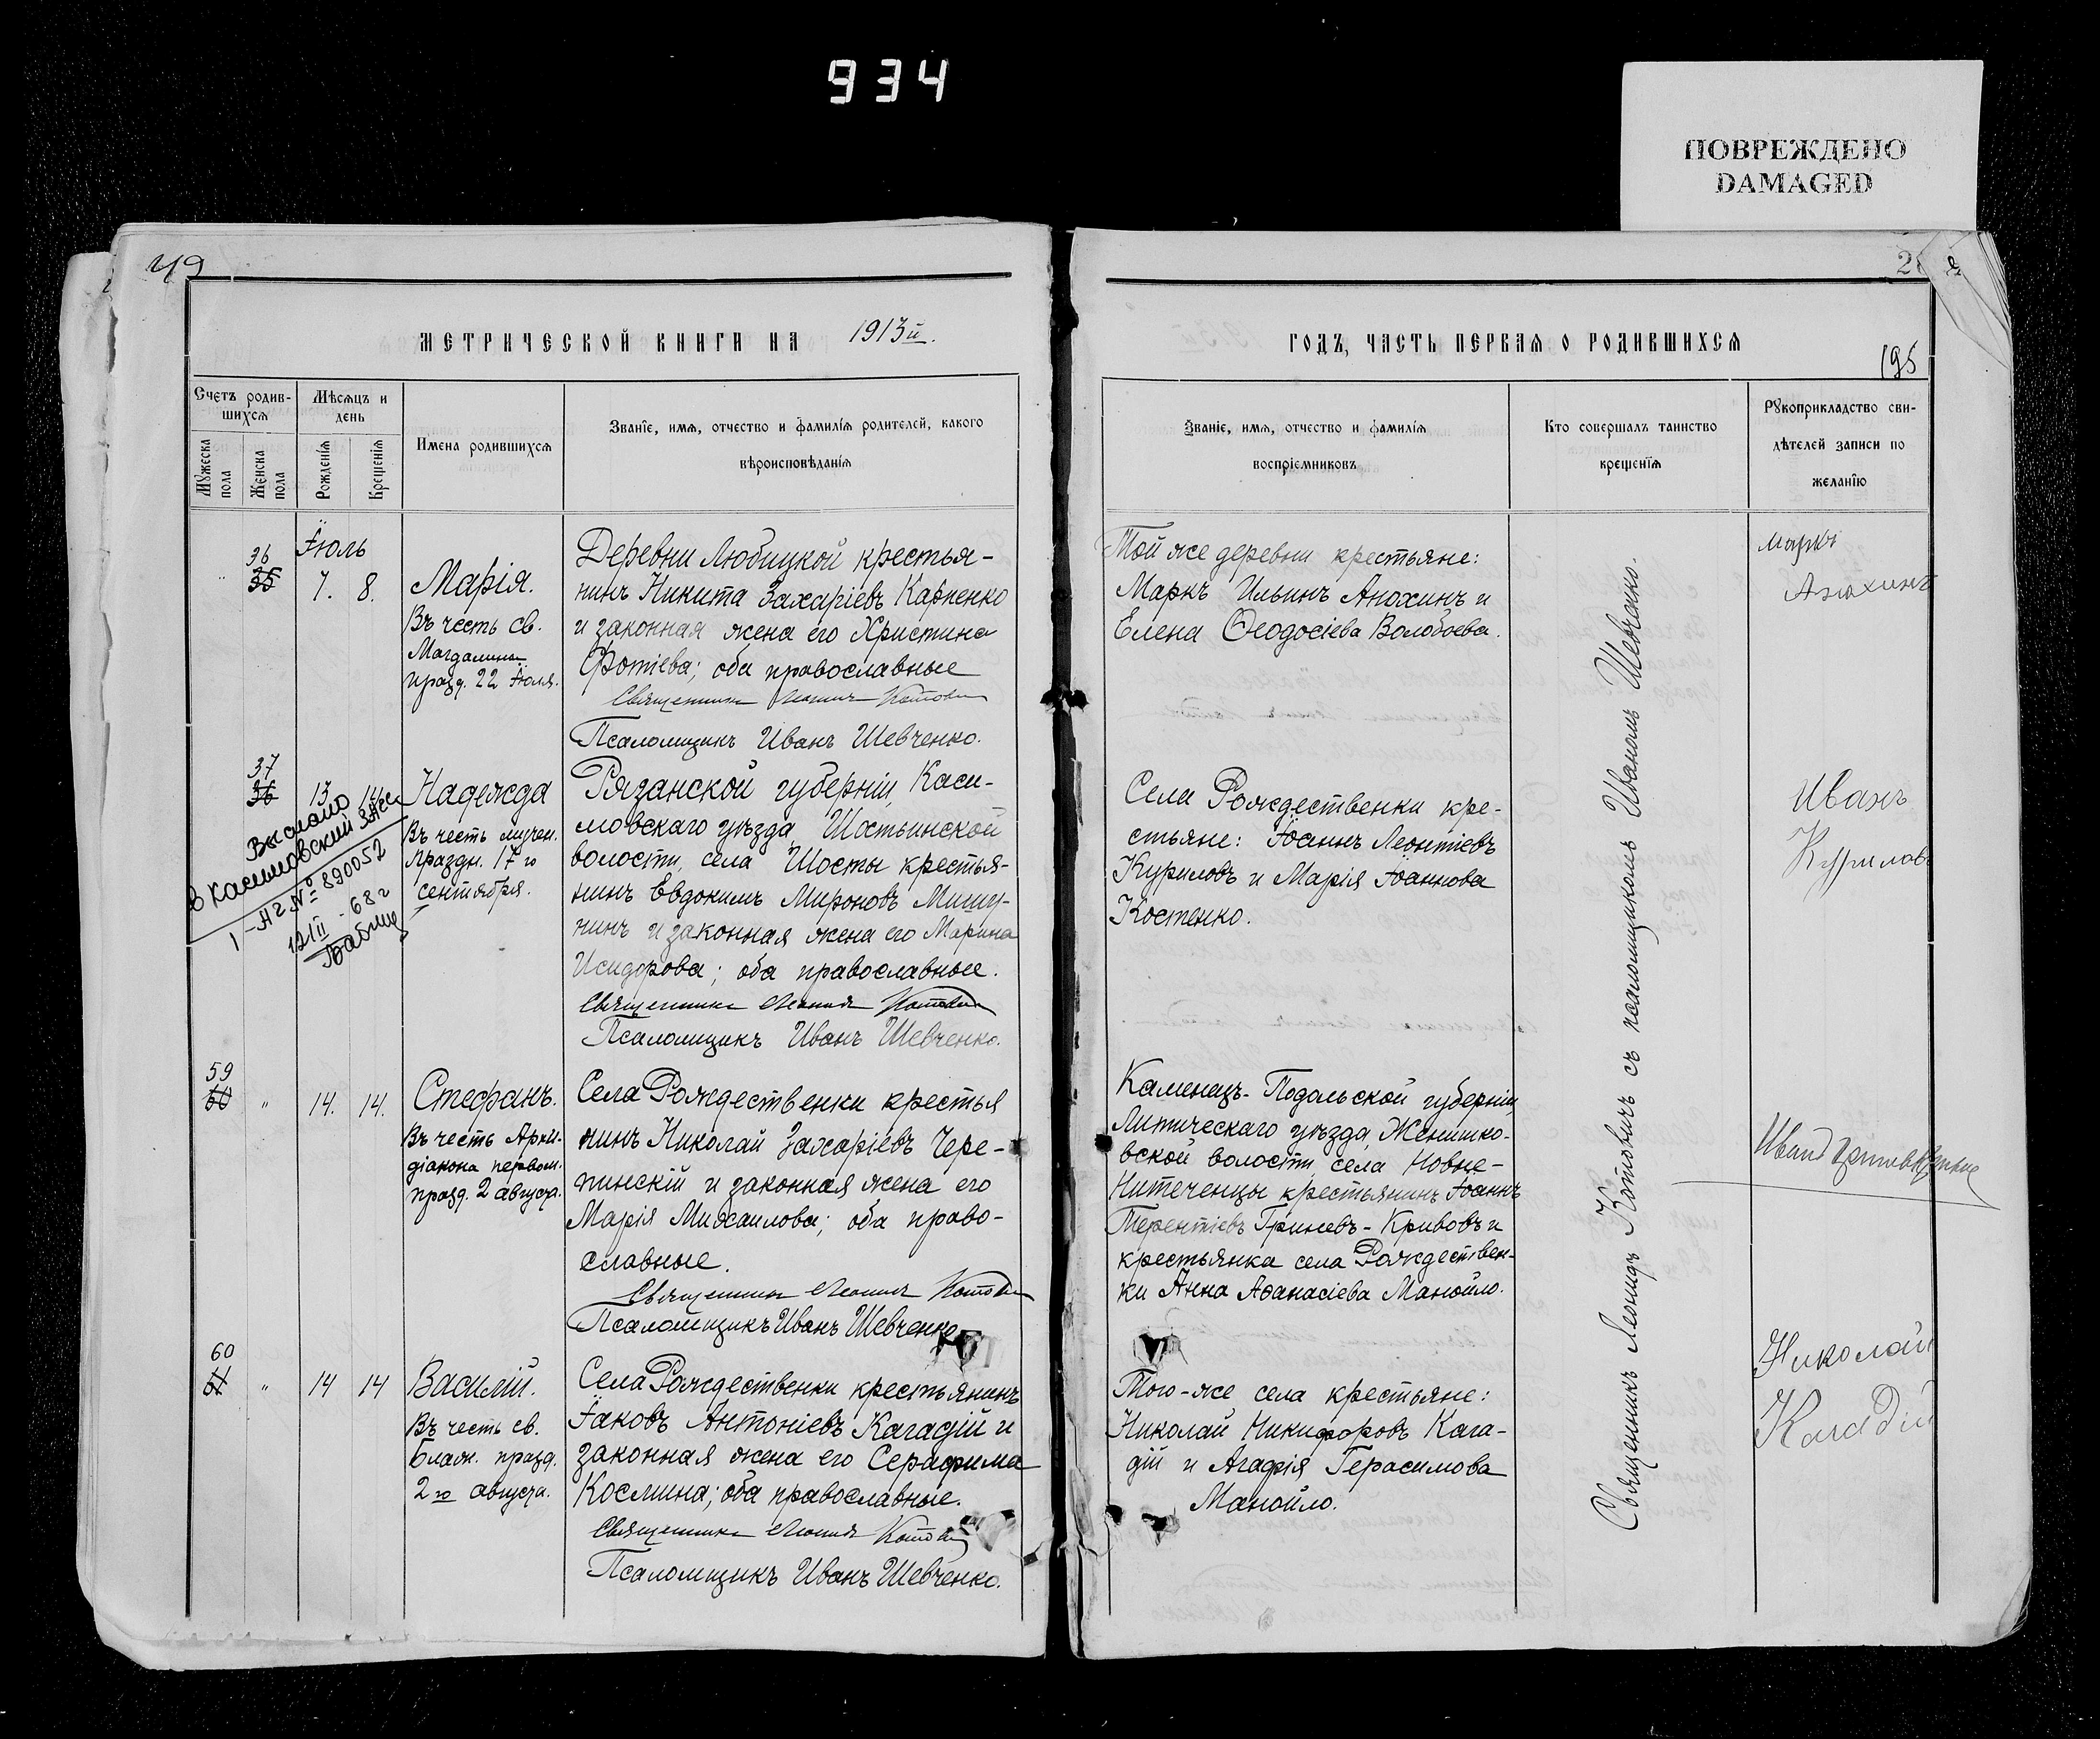 934
ПОВРЕЖДЕНО
DAMAGED
49
МЕТРИЧЕСКОЙ КНИГИ НА 1913й.
Счетъ родив-
шихся
Мѣсяцъ и
день
Мужеска
пола
Женска
пола
Рожденія
Крещенія
Имена родившихся
Званіе, имя, отчество и фамилія родителей, какого
вѣроисповѣданія
Іюль
36
35
7. 8.
Марія.
Въ честь св.
Магдалины
празд. 22 Іюля.
Деревни Любицкой крестья-
нинъ Никита Захаріевъ Карпенко
и законная жена его Христина
Фотіева; оба православные
Священникъ Леонидъ Котовичъ
Псаломщикъ Иванъ Шевченко.
37
36
13 14
Надежда
Въ честь мучен.
Праздн. 17 го
сентября.
Выслано
в Касимовский ЗАГС
1-АГ № 890052
12 III - 68 г
Рязанской губерніи, Каси-
мовскаго уѣзда, Шостьинской
волости, села Шосты крестья-
нинъ Евдокимъ Мироновъ Мишу-
нинъ и законная жена его Марина
Исидорова; оба православные.
Священникъ Леонидъ Котовичъ
Псаломщикъ Иванъ Шевченко.
59
60
" 14. 14.
Стефанъ.
Въ честь Архи-
діакона первом.
празд. 2 августа.
Села Рождественки крестья
нинъ Николай Захаріевъ Чере-
пинскій и законная жена его
Марія Михаилова; оба право-
славные.
Священникъ Леонидъ Котовичъ
Псаломщикъ Иванъ Шевченко
60
61
" 14 14
Василій.
Въ честь св.
Блаж. празд.
2 го августа.
Села Рождественки крестьянинъ
Іаковъ Антоніевъ Кагадій и
законная жена его Серафима
Космина; оба православные.
Священникъ Леонидъ Котовичъ
Псаломщикъ Иванъ Шевченко.
ГОДЪ, ЧАСТЬ ПЕРВАЯ О РОДИВШИХСЯ
195
Званіе, имя, отчество и фамилія
воспріемниковъ
Кто совершалъ таинство
крещенія
Рукоприкладство сви-
дѣтелей записи по
желанію
Той же деревни крестьяне:
Маркъ Ильинъ Анохинъ и
Елена Ѳеодосіева Волобоева.
Маркъ
Анохинъ
Села Рождественки кре-
стьяне: Іоаннъ Леонтіевъ
Куриловъ и Марія Іоаннова
Костенко.
Иванъ
Куриловъ
Каменецъ-Подольской губерніи,
Литическаго уѣзда, Женишко-
вской волости, села Новые-
Нитеченцы крестьянинъ Іоаннъ
Терентіевъ Гриневъ-Кривовъ и
крестьянка села Рождествен-
ки Анна Аѳанасіева Манойло.
Иванъ
Того-же села крестьяне:
Николай Никифоровъ Кага-
дій и Агафія Герасимова
Манойло.
Николай
Кагадій
Священникъ Леонидъ Котовичъ съ псаломщикомъ Иваномъ Шевченко.